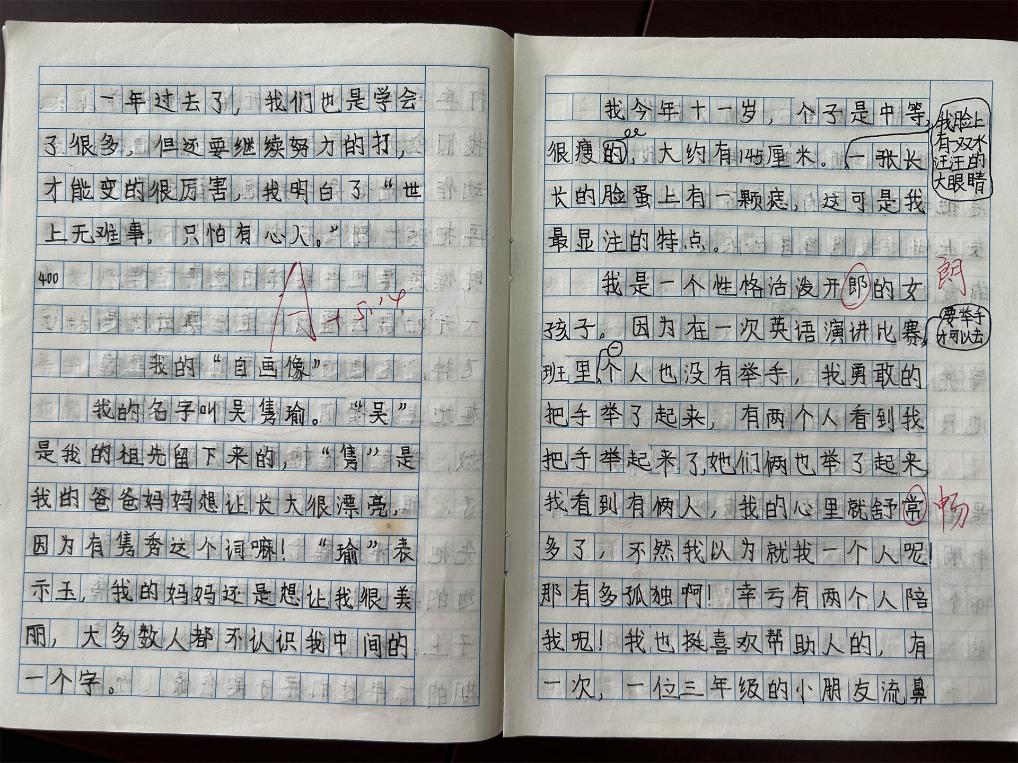 一年过去了，我们也是学会
了很多，但还要继续努力的打，
才能变的很厉害，我明白了“世
上无难事，只怕有心人。”
400
A
5.14
我的“自画像”
我的名字叫吴隽瑜。“吴”
是我的祖先留下来的，“隽”是
我的爸爸妈妈想让长大很漂亮，
因为有隽秀这个词嘛！“瑜”表
示玉，我的妈妈还是想让我很美
丽，大多数人都不认识我中间的
一个字。
我今年十一岁，个子是中等，
很瘦的，大约有145厘米。一张长
我脸上
有一双水
汪汪的
大眼睛
长的脸蛋上有一颗痣，这可是我
最显注的特点。
我是一个性格活泼开郎的女
朗
孩子。因为在一次英语演讲比赛，
要举手
才可以去
班里，一个人也没有举手，我勇敢的
把手举了起来，有两个人看到我
把手举起来了，她们俩也举了起来，
我看到有俩人，我的心里就舒常
畅
多了，不然我以为就我一个人呢！
那有多孤独啊！幸亏有两个人陪
我呢！我也挺喜欢帮助人的，有
一次，一位三年级的小朋友流鼻